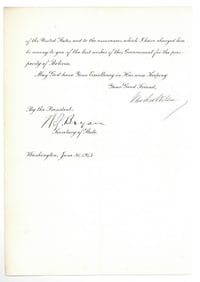 of the United States, and to the assurances which I have charged him
to convey to you of the best wishes of this Government for the pros-
perity of Bolivia.
May God have Your Excellency in His wise keeping.
Your Good Friend,
Woodrow Wilson
By the President:
W J Bryan
Secretary of State.
Washington, June 30, 1913